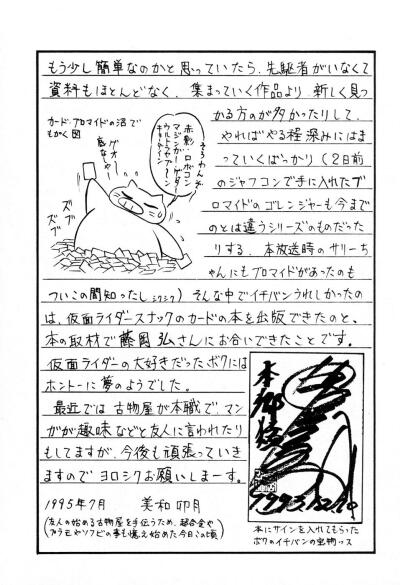 もう少し簡単なのかと思っていたら、先駆者がいなくて
資料もほとんどなく、集まっていく作品より新しく見つ
かる方のが多かったりして、
やればやる程深みにはま
っていくばっかり(2日前
のジャフコンで手に入れたブ
ロマイドのゴレンジャーも今まで
のとは違うシリーズのものだった
りする、本放送時のサリーち
ゃんにもブロマイドがあったのも
ついこの間知ったし シクシク)そんな中でイチバンうれしかったの
は、仮面ライダースナックのカードの本を出版できたのと、
本の取材で藤岡弘さんにお会いできたことです。
仮面ライダーの大好きだったボクには
ホントーに夢のようでした。
最近では古物屋が本職で、マン
ガが趣味などと友人に言われたり
もしてますが、今後も頑張っていき
ますのでヨロシクお願いしまーす。
1995年7月 美和卯月
(友人の始める古物屋を手伝うため、超合金や
プラモやソフビの事も憶え始めた今日この頃)
カード・ブロマイドの沼で
もがく図
そろわんぞ
赤影・ロボコン
マジンガー・ゲッター
ズブ
ズブ
ズブ
本郷猛
本にサインを入れてもらった
ボクのイチバンの宝物ッス